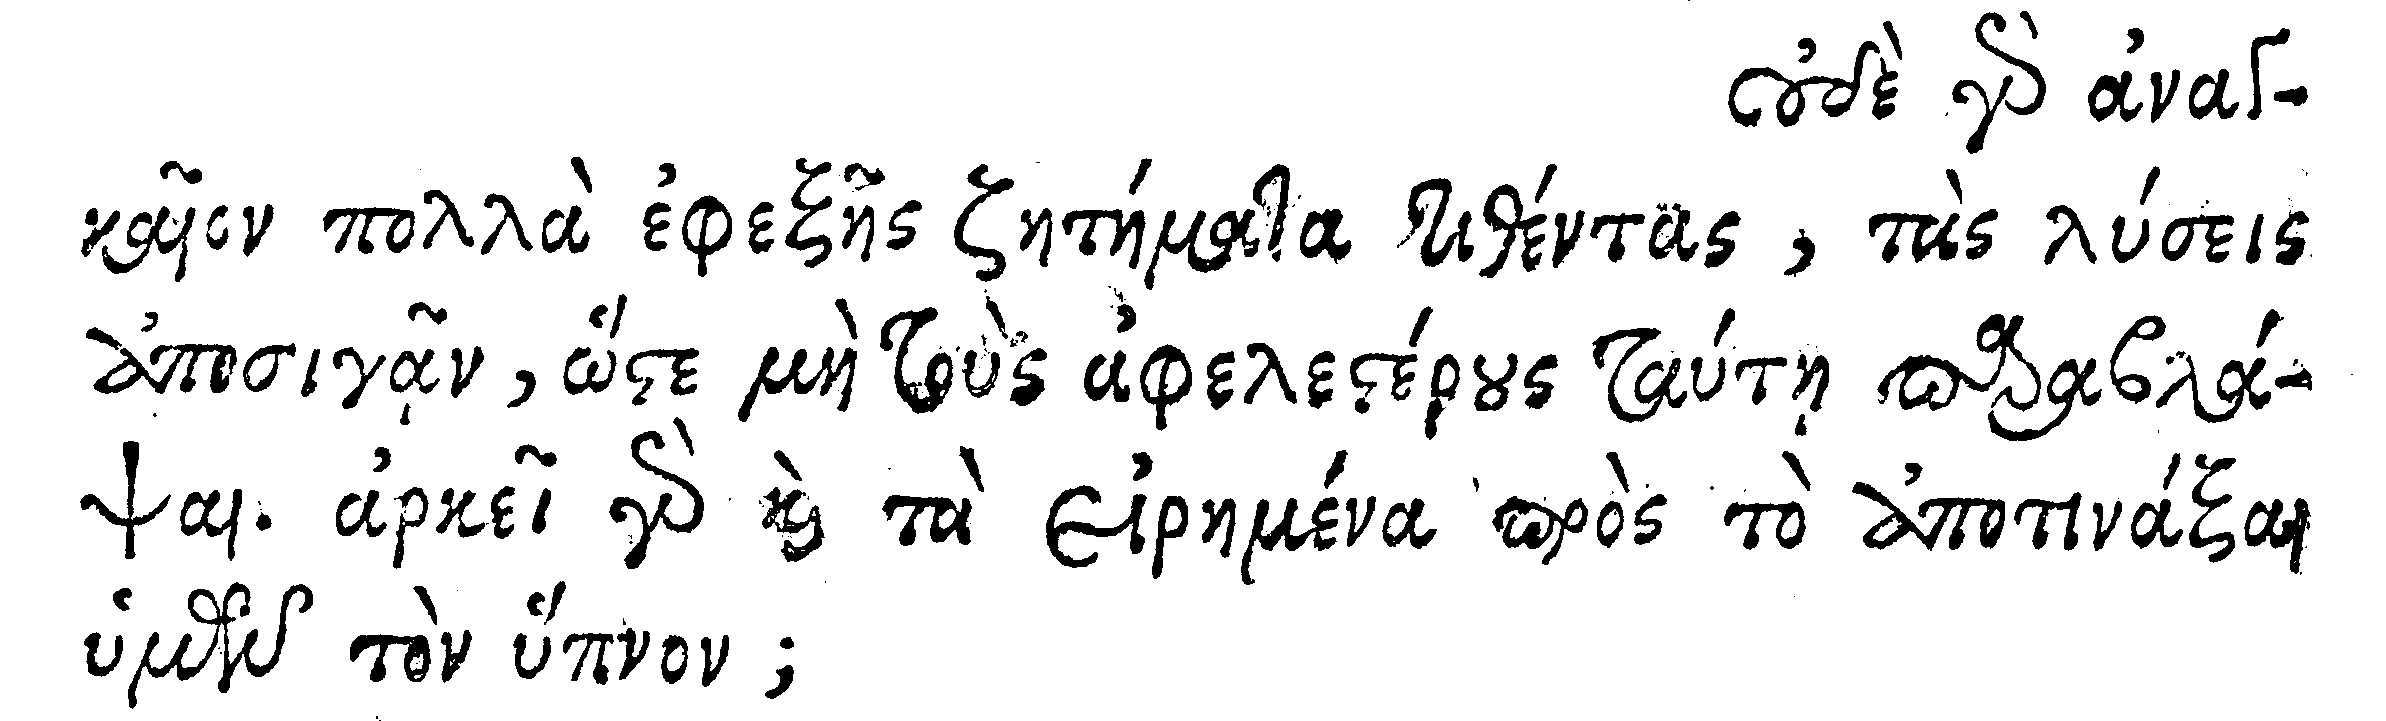 οὐδὲ γὰρ ἀναγ-
καῖον πολλὰ ἐφεξῆς ζητήματα τιθέντας, τὰς λύσεις
ἀποσιγᾷν, ὥστε μὴ τοὺς ἀφελεστέρους ταύτῃ παραβλά-
ψαι. ἀρκεῖ γὰρ καὶ τὰ εἰρημένα πρὸς τὸ ἀποτινάξαι
τὸν ὕπνον;